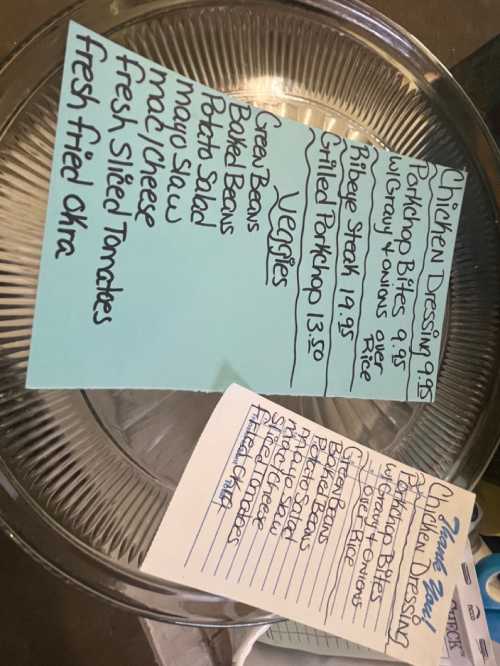 Chicken Dressing 9.95
Porkchop Bites 9.95
w/Gravy & onions over
Rice
Ribeye Steak 19.95
Grilled Porkchop 13.50
Veggies
Green Beans
Baked Beans
Potato Salad
mayo Slaw
mac/Cheese
fresh Sliced Tomatoes
fresh fried Okra
Thank You!
Chicken Dressing
Porkchop Bites
w/Gravy & onions
over Rice
Green Beans
Baked Beans
Potato Salad
mayo Slaw
mac/Cheese
Sliced Tomatoes
fried Okra